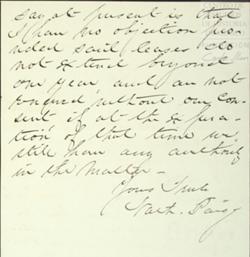 say at present is that
I have no objection pro-
vided said leases do
not extend beyond
one year, and are not
renewed without our con-
sent if at the expira-
tion of that time we
still have any authority
in the matter -
Yours Truly
Nath.